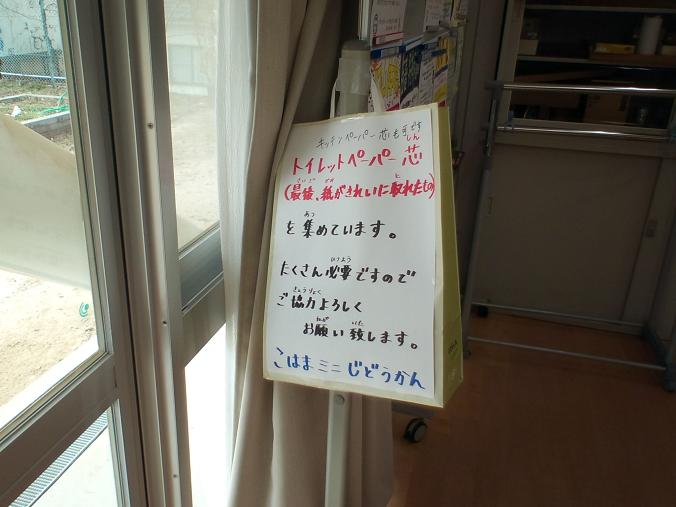 キッチンペーパー芯も可です
トイレットペーパー芯
(最後、紙がきれいに取れたもの)
を集めています。
たくさん必要ですので
ご協力よろしく
お願い致します。
こはまミニじどうかん